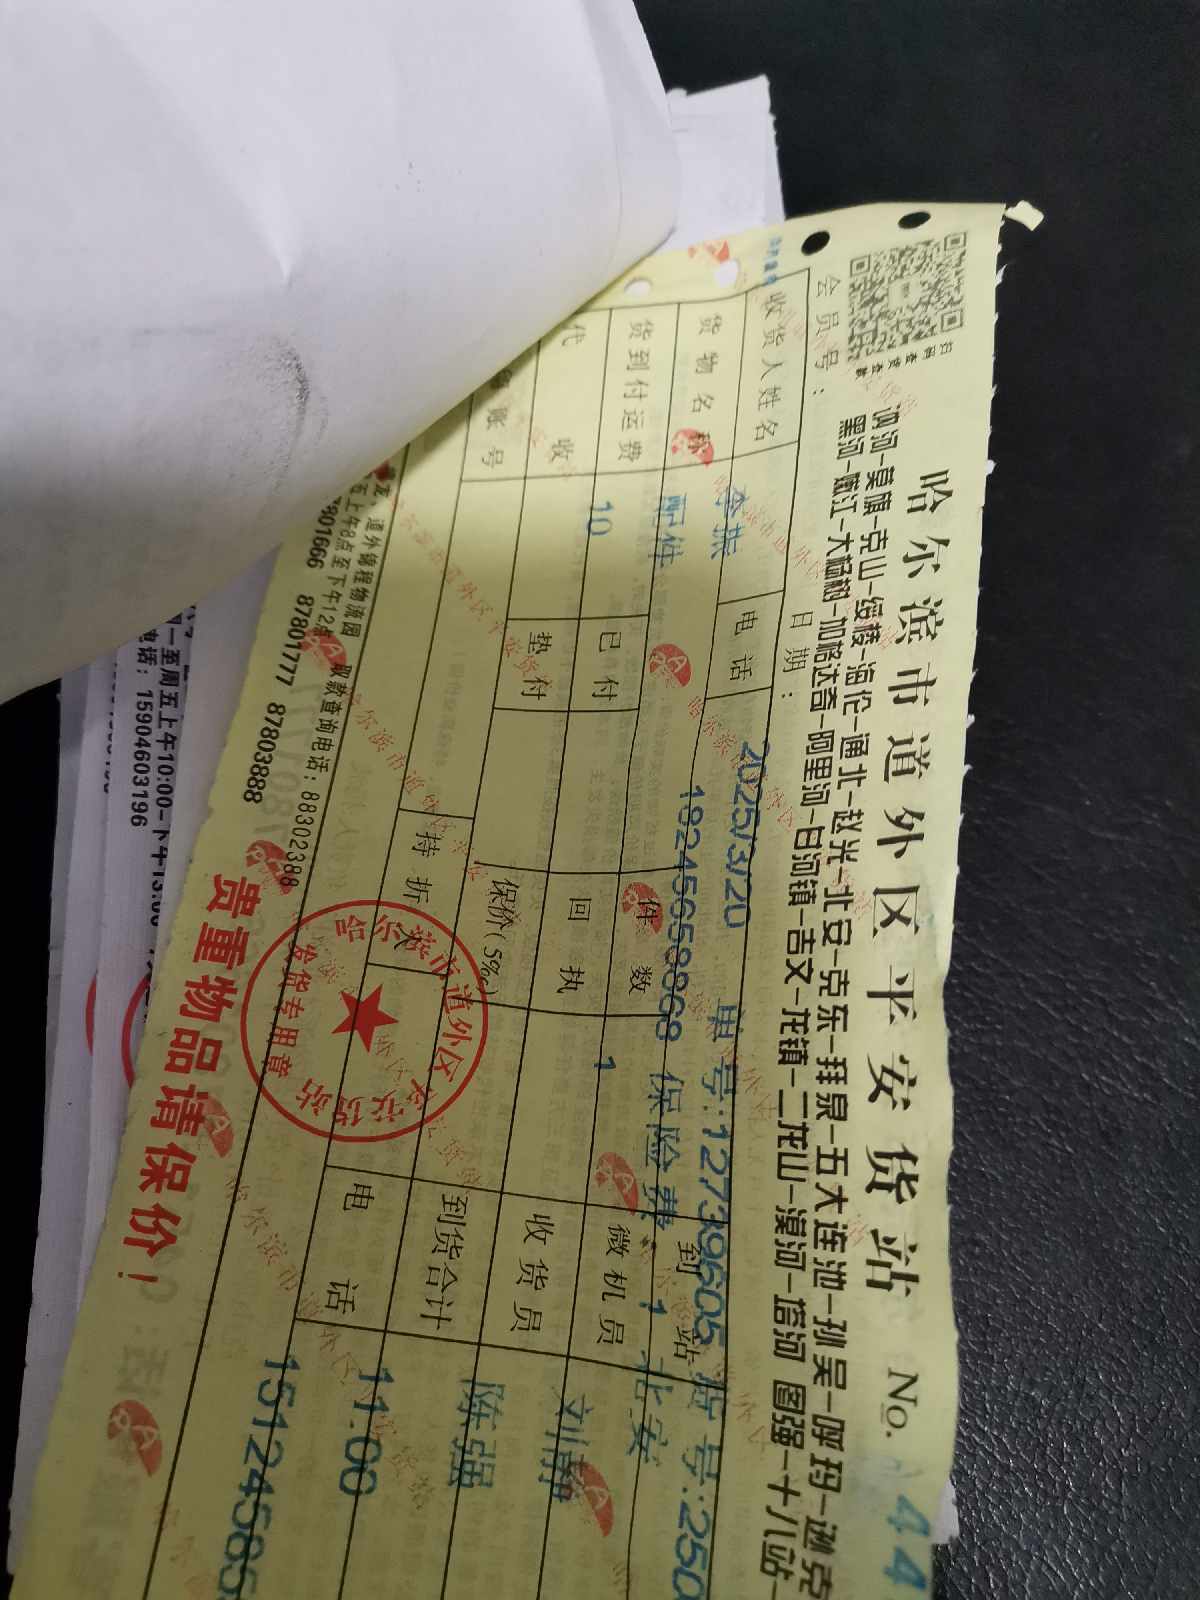 哈尔滨市道外区平安货站 No. 44
讷河-莫旗-克山-绥棱-海伦-通北-赵光-北安-克东-拜泉-五大连池-孙吴-呼玛-逊克
黑河-嫩江-大杨树-加格达奇-阿里河-甘河镇-吉文-龙镇-二龙山-漠河-塔河 图强-十八站-
扫码查货查款
会员号：
日期： 2025/3/20 单号:12739605 货号:250
收货人姓名 李振 电话 18245658868 保险费 1 到站 北安
货物名称 配件 件数 1 微机员 刘静
货到付运费 10 已付 回执 收货员 陈强
代收 垫付 保价(5‰) 到货合计 11.00
账号 持折人 电话 1512458
道外锦程物流园 取款查询电话：88302388
上午8点至下午12点
801666 87801777 87803888
贵重物品请保价！
哈尔滨市道外区平安货站
发货专用章
一至周五上午10:00-下午13:00
电话：15904603196